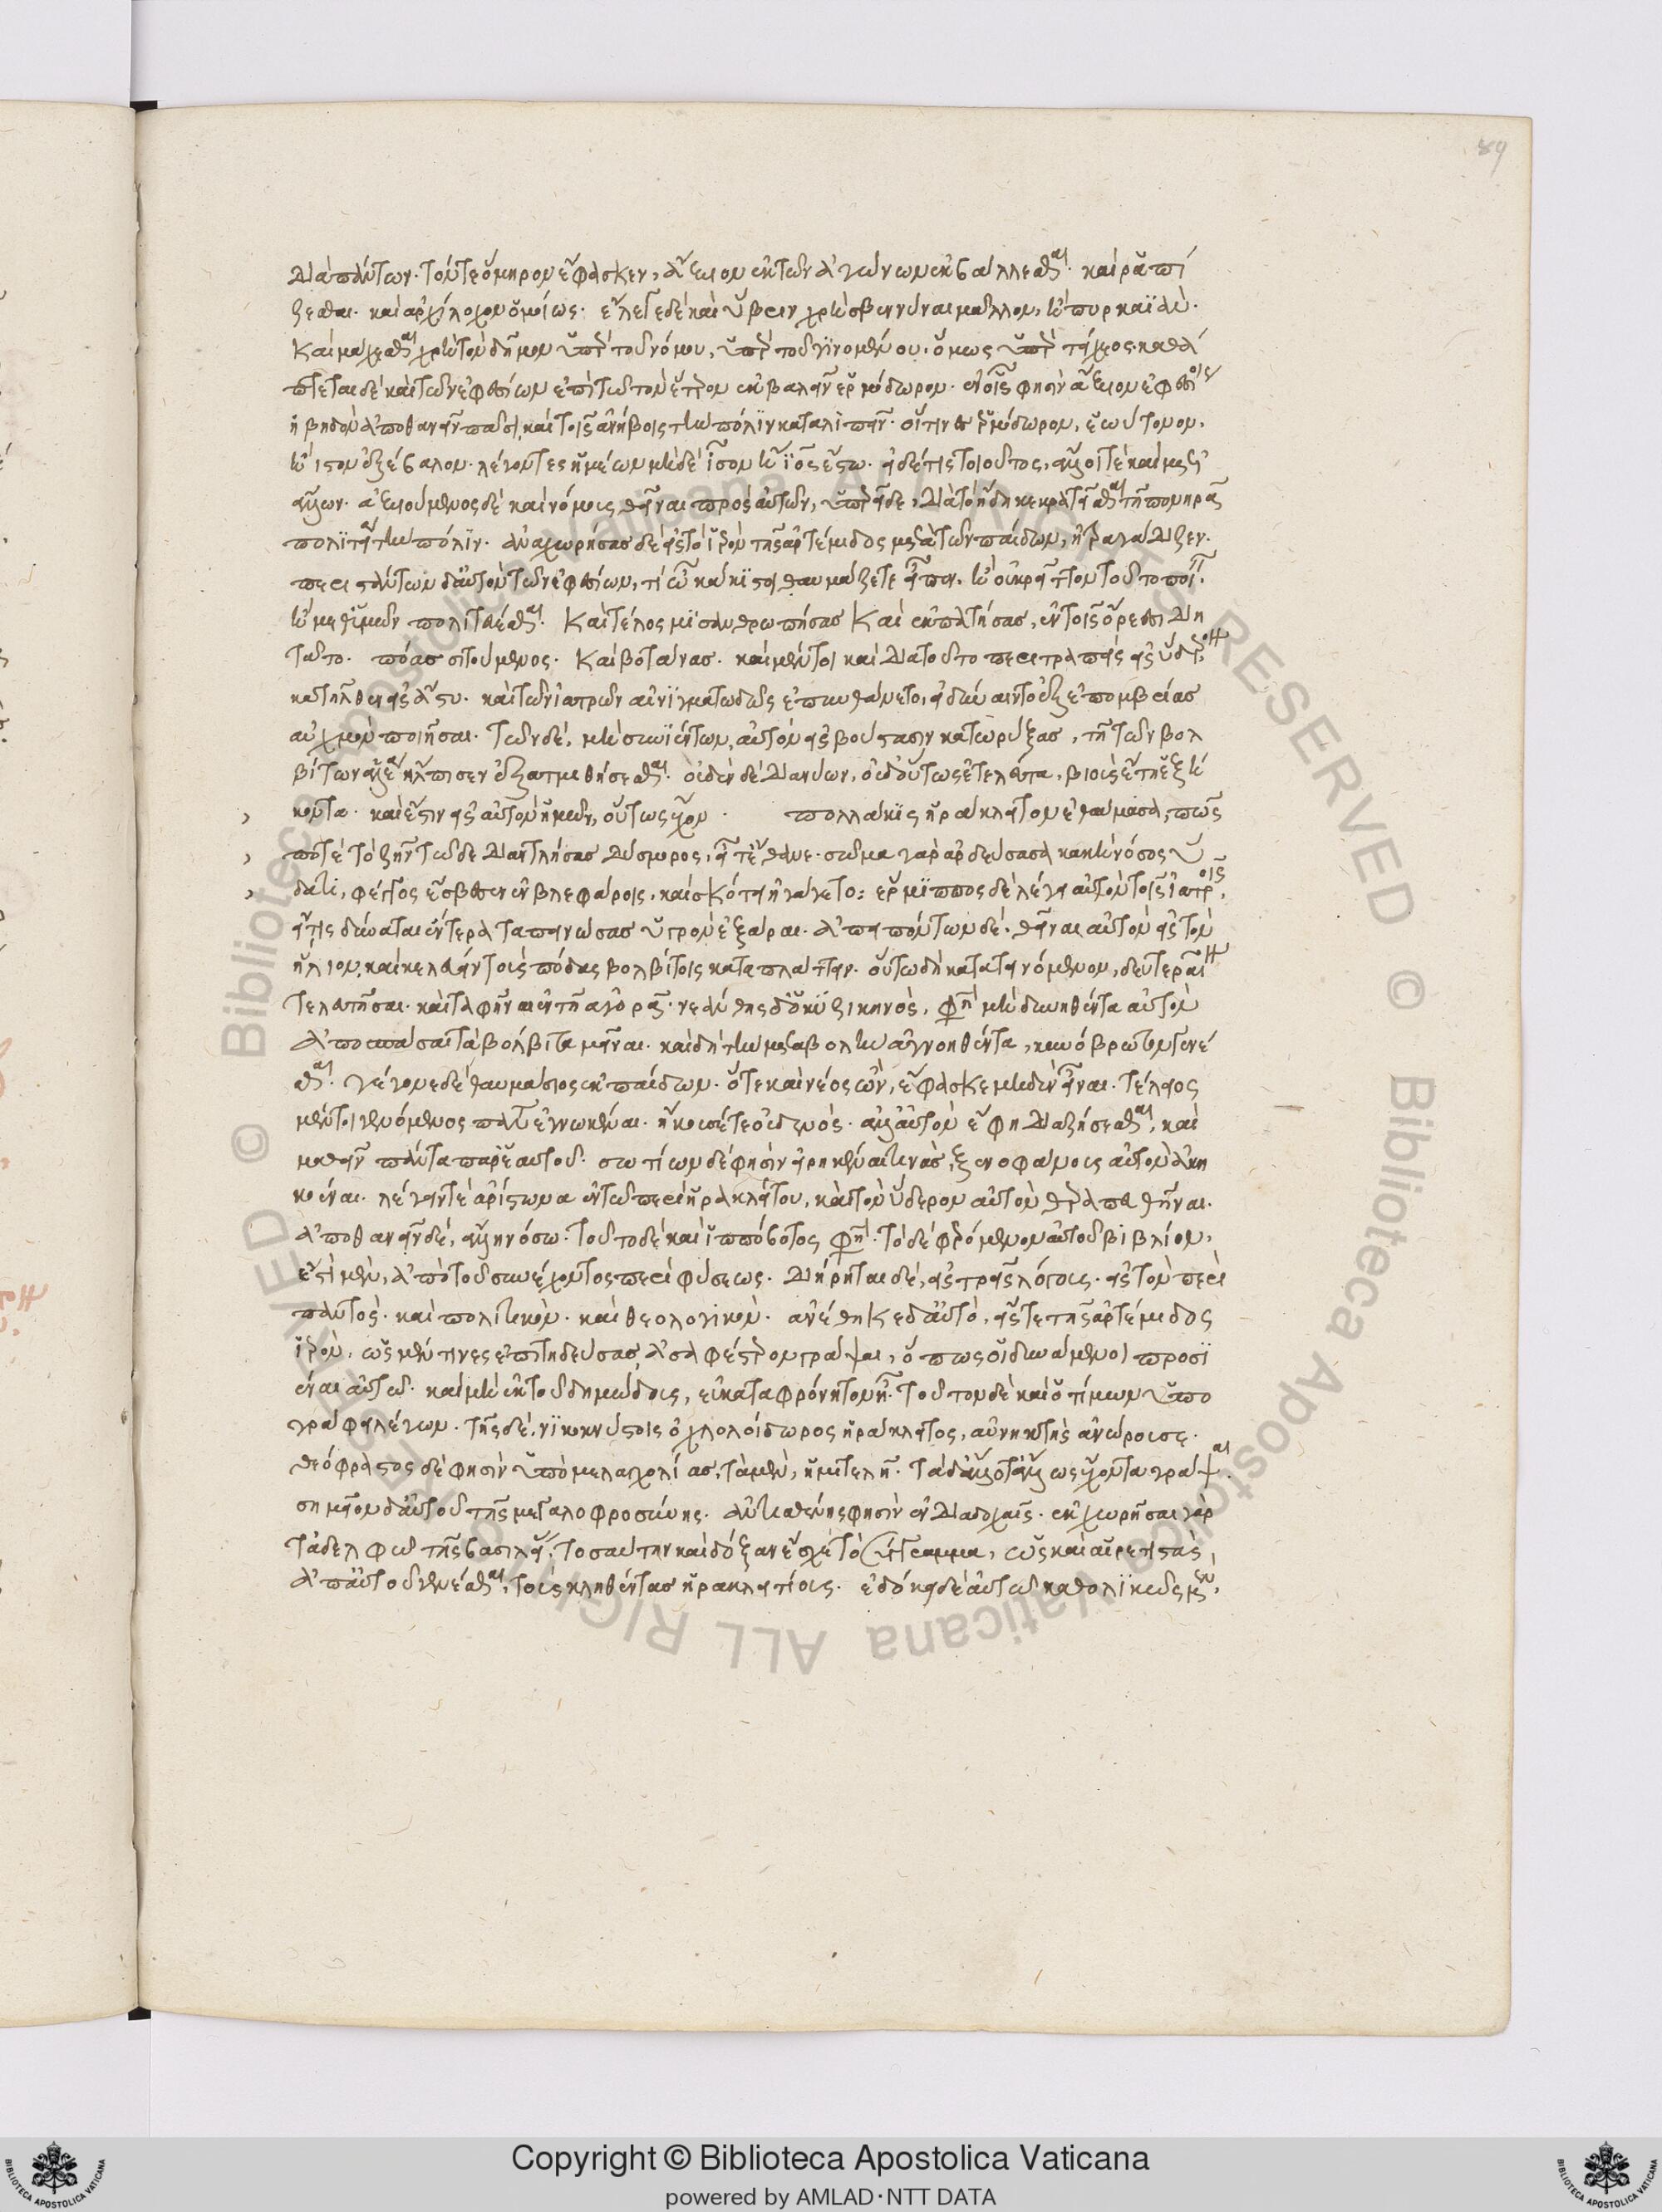 διαπάντων· τόν τε ὅμηρον ἔφασκεν, ἄξιον ἐκ τῶν ἀγώνων ἐκβάλλεσθαι· καὶ ῥαπί
ζεσθαι· καὶ ἀρχίλοχον ὁμοίως· ἔλεγε δὲ καὶ ὕβριν χρὴ σβεννύναι μᾶλλον, ἢ πυρκαϊάν·
καὶ μάχεσθαι χρὴ τὸν δῆμον ὑπὲρ τοῦ νόμου, ὑπὲρ τοῦ γινομένου. ὅμως ὑπὲρ τείχεος. καθά
πτεται δὲ καὶ τῶν ἐφεσίων ἐπὶ τῶ τὸν ἕτερον ἐκβαλεῖν ἑρμόδωρον· ἐν οἷς φησὶν ἄξιον ἐφεσίοις
ἡβηδὸν ἀποθανεῖν πᾶσι, καὶ τοῖς ἀνήβοις τὴν πόλιν καταλιπεῖν· οἵτινες ἑρμόδωρον, ἑωυτὸν ὀν,
ήιστον ἐξέβαλον. λέγοντες ἡμέων μηδὲ ἷσον ἢ ἱὸς ἔστω. εἰ δέ τις τοιοῦτος, ἄλλοι τὲ καὶ μετ'
ἄλλων. ἀξιούμενος δὲ καὶ νόμοις θεῖναι πρὸς αὐτῶν, ὑπερεῖδε, διὰ τὸ ἤδη κεκρατεῖσθαι τῆ πονηρᾶ
πολιτεία τὴν πόλιν. ἀναχωρήσας δὲ εἰς τὸ ἱερὸν τῆς ἀρτέμιδος μετὰ τῶν παίδων, ἠστραγάλιζεν.
περιστάντων δ' αὐτὸν τῶν ἐφεσίων, τί ὦ κάκιστοι θαυμάζετε εἶπεν. ἢ οὐ κρεῖττον τοῦτο ποιεῖν.
ἢ μεθ' ὑμῶν πολιτεύεσθαι. καὶ τέλος μισανθρωπήσας καὶ ἐκπατήσας, ἐν τοῖς ὄρεσι διη
τᾶτο. πόας σιτούμενος. καὶ βοτάνας. καὶ μέντοι καὶ διὰ τοῦτο περιτραπεὶς εἰς ὕδερον
κατῆλθεν εἰς ἄστυ. καὶ τῶν ἰατρῶν αἰνιγματωδῶς ἐπυνθάνετο, εἰ δύναιντο ἐξ ἐπομβρίας
αὐχμὸν ποιῆσαι. τῶν δὲ, μὴ συνιέντων, αὐτὸν εἰς βούστασιν κατορύξας, τῆ τῶν βολ
βίτων ἀλέα ἤλπισεν ἐξατμισθήσεσθαι. οὐδὲν δὲ ἀνύων, οὐδ' οὕτως ἐτελεύτα, βιοὺς ἔτη ἑξή
κοντα. καὶ ἔστιν εἰς αὐτὸν ἡμῶν, οὕτως ἔχον. πολλάκις ἡράκλειτον ἐθαύμασα, πῶς
ποτὲ τὸ ζῆν τῶδε διαντλήσας δύσμορος, εἶτ' ἔθανε. σῶμα γὰρ ἀρδεύσασα κακὴ νόσος ὕ
δατι, φέγγος ἔσβεσεν ἐν βλεφάροις, καὶ σκότον ἠγάγετο: ἕρμιππος δὲ λέγει αὐτὸν τοῖς ἰατροῖς,
εἴ τις δύναται ἔντερα ταπεινώσας ὑγρὸν ἐξᾶραι. ἀπειπόντων δὲ, θεῖναι αὐτὸν εἰς τὸν
ἥλιον, καὶ κελεύειν τοὺς πόδας βολβίτοις καταπλάττειν. οὕτω δὴ κατατεινόμενον, δευτεραῖον
τελευτῆσαι. καὶ ταφῆναι ἐν τῆ ἀγορᾶ. νεάνθης δ' ὁ κυζικηνὸς, φησὶ μὴ δυνηθέντα αὐτὸν
ἀποσπάσαι τὰ βόλβιτα μεῖναι. καὶ δὴ τὴν μεταβολὴν ἀγνοηθέντα, κυνόβρωτον γενέ
σθαι. γέγονε δὲ θαυμάσιος ἐκ παίδων. ὅτε καὶ νέος ὢν, ἔφασκε μηδὲν εἶναι. τέλειος
μέντοι γενόμενος πάντ' ἐγνωκέναι. ἤκουσέ τε οὐδενὸς. ἀλλ' αὐτὸν ἔφη διαζήσεσθαι, καὶ
μαθεῖν πάντα παρ' ἑαυτοῦ. σωτίων δέ φησιν εἰρηκέναι τινὰς, ξενοφάνους αὐτὸν ἀκη
κοέναι. λέγειν τὲ ἀρίστωνα ἐν τῶ περὶ ἡρακλείτου, καὶ τὸν ὕδερον αὐτὸν θεραπευθῆναι.
ἀποθανεῖν δὲ, ἄλλη νόσω. τοῦτο δὲ καὶ ἱππόβοτος φησί. τὸ δὲ φερόμενον αὐτοῦ βιβλίον,
ἐστὶ μὲν, ἀπὸ τοῦ συνέχοντος περὶ φύσεως. διήρηται δὲ, εἰς τρεῖς λόγους. εἰς τὸν περὶ
παντὸς. καὶ πολιτικὸν. καὶ θεολογικὸν. ἀνέθηκε δ' αὐτὸ, εἰς τὲ τῆς ἀρτέμιδος
ἱερὸν. ὡς μέν τινες ἐπιτηδεύσας ἀσαφέστερον γράψαι, ὅπως οἱ δυνάμενοι προσϊ
έναι αὐτῶ. καὶ μὴ ἐκ τοῦ δημώδους, εὐκαταφρόνητον ἦ. τοῦτον δὲ καὶ ὁ τίμων ὑπο
γράφει λέγων. τῆς δέ, νικοκνύστοις ὀχλολοίδωρος ἡράκλειτος, αὐνηκτὴς ἀνώρουσε.
θεόφραστος δέ φησὶν ὑπὸ μελαγχολίας, τὰ μὲν, ἡμιτελῆ. τὰ δ' ἄλλοτ' ἄλλως ἔχοντα γράψαι.
σημεῖον δ' αὐτοῦ τῆς μεγαλοφροσύνης. ἀντισθένης φησὶν ἐν διαδοχαῖς. ἐκχωρῆσαι γὰρ
τἀδελφῶ τῆς βασιλείας. τοσαύτην καὶ δόξαν ἔσχε τὸ σύγγραμμα, ὡς καὶ αἱρετιστὰς
ἀπ' αὐτοῦ γενέσθαι, τοὺς κληθέντας ἡρακλειτίους. ἐδόκει δὲ αὐτῶ καθολικῶς μὲν,